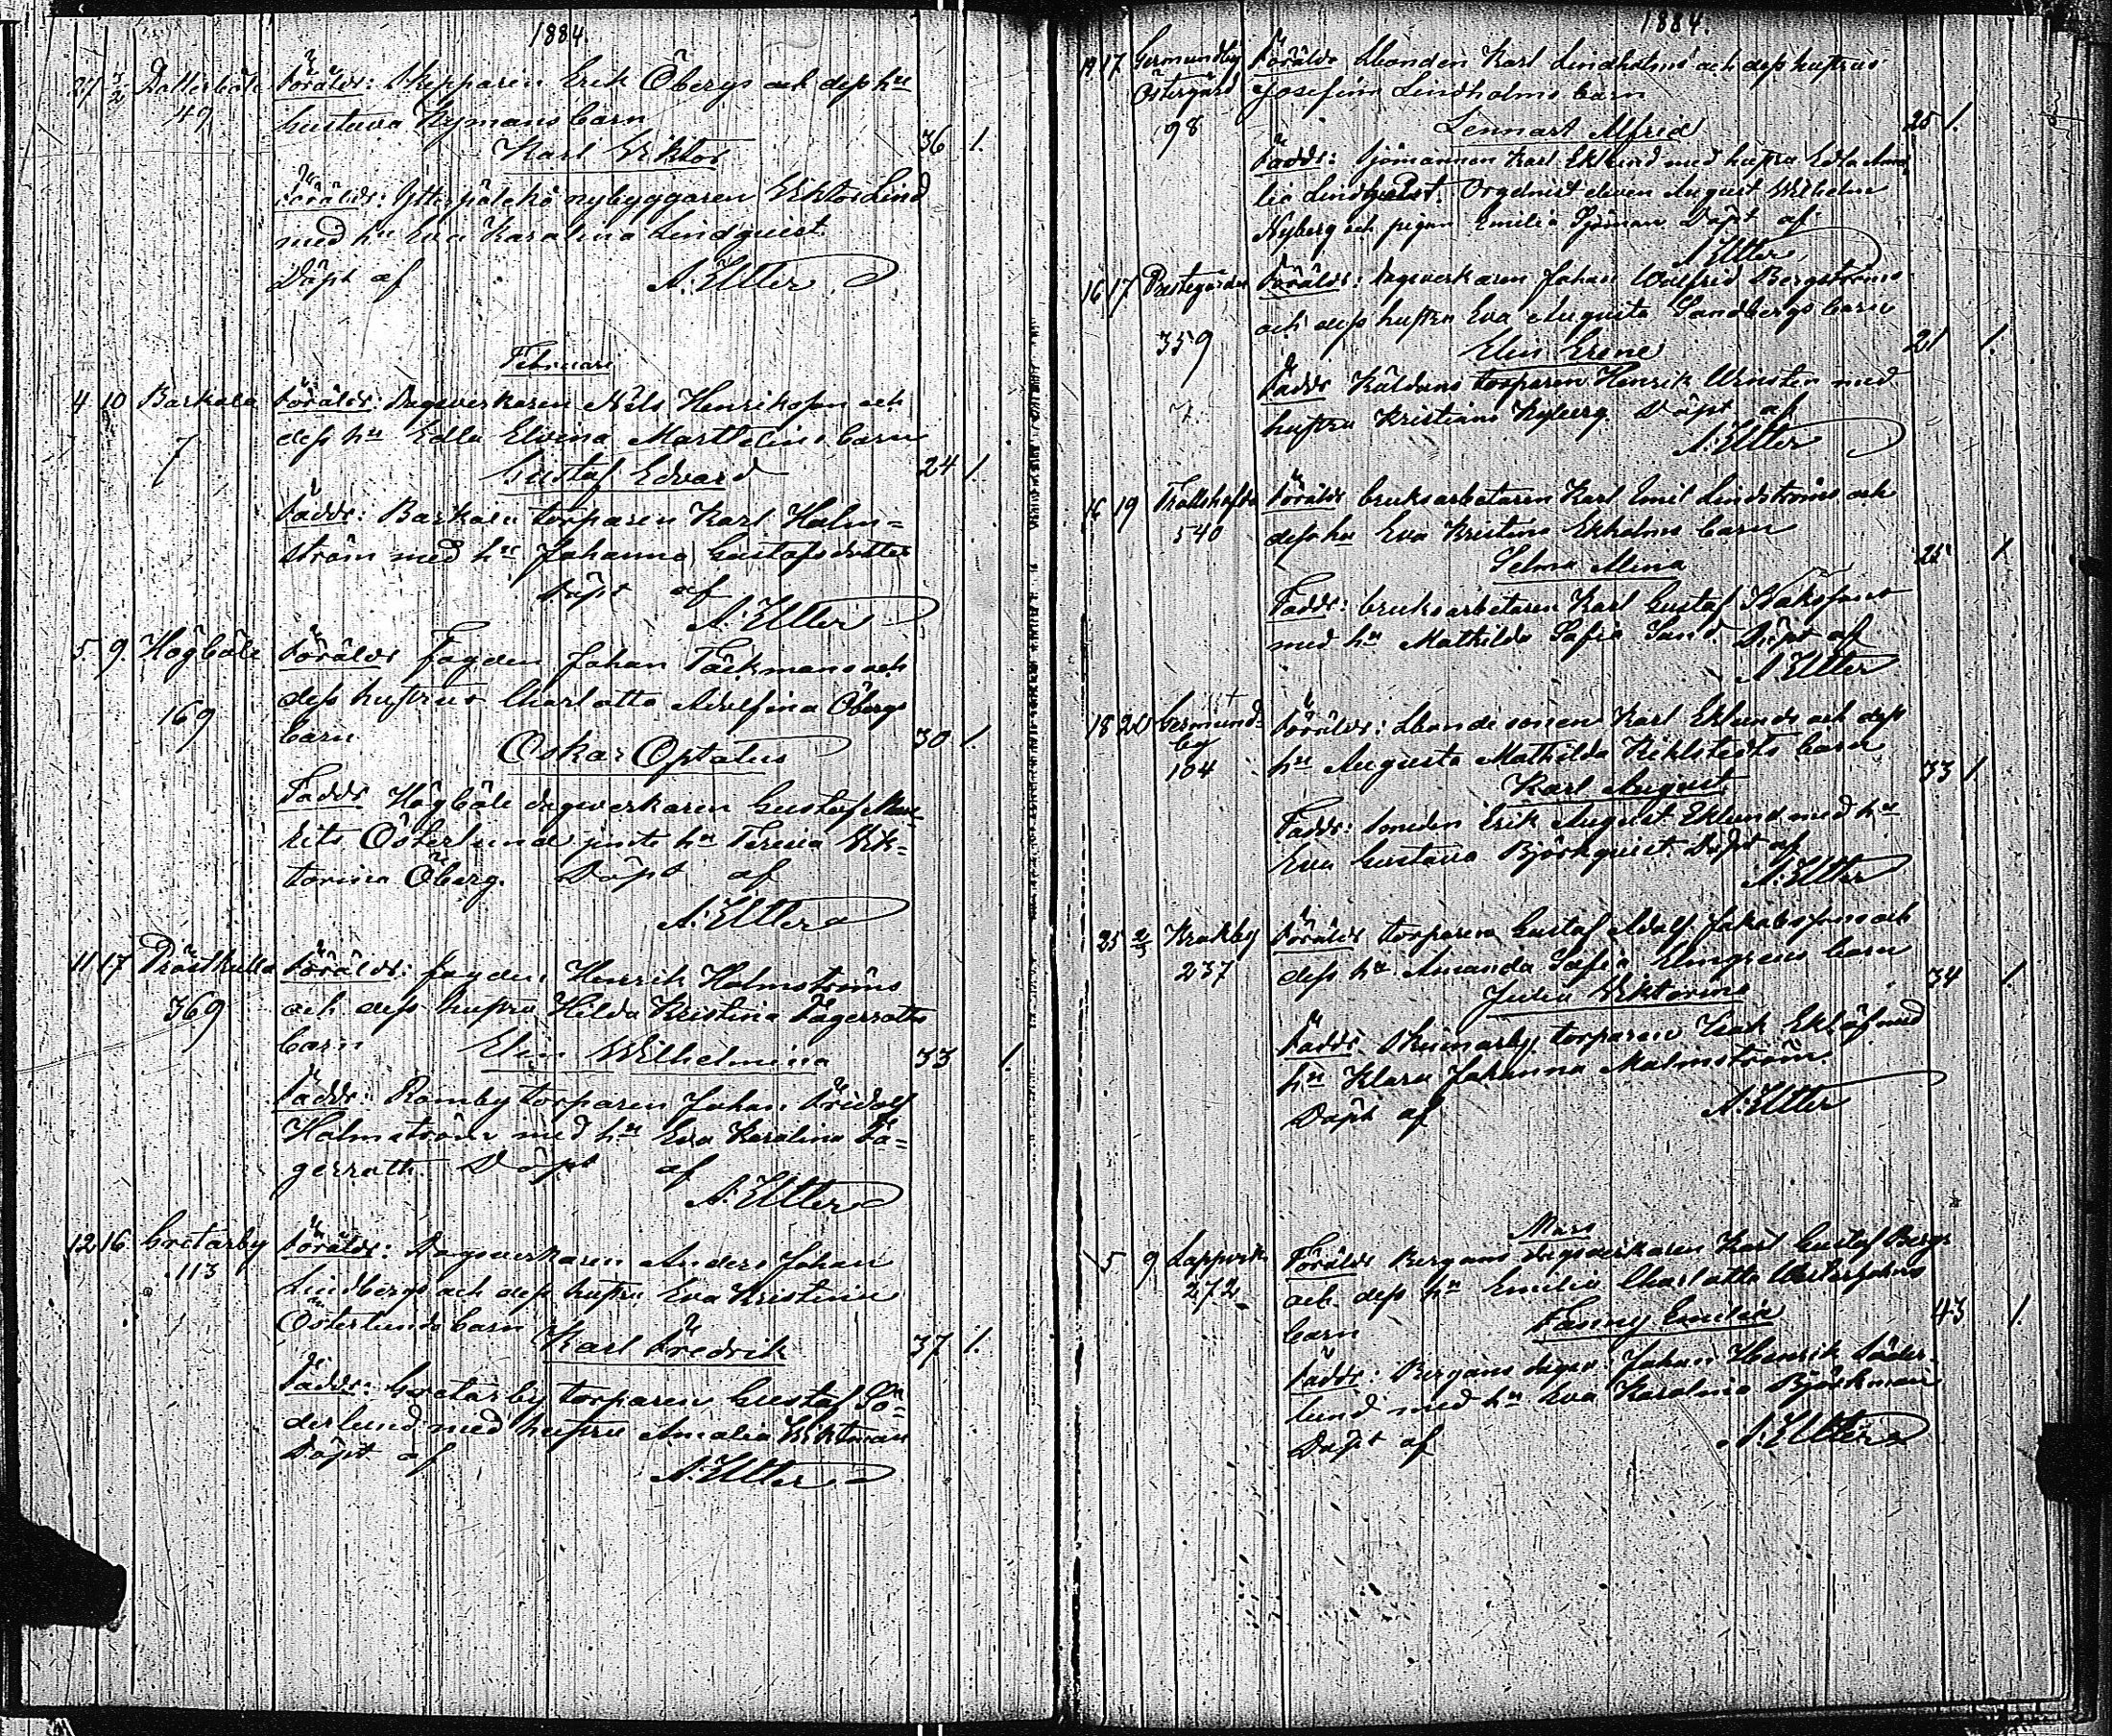 1884.
27 3/2 Dalkarböle Föräldr: Skepparen Erik Öbergs och dess hu
49 Gustava Nymans barn
Karl Viktor 36 1.
Föräldr: nybyggaren Viktor Lind
med hu Eva Karolina Lindqvist.
Döpt af A. Elter
Februari
4 10 Barkala Föräldr: Dagsverkaren Nils Henriksson och
7 dess hu Edla Elvina Marthelins barn
Gustaf Edvard 24 1.
Faddr: Barkala torparen Karl Holm=
ström med hu Johanna Gustafsdotter
Döpt af
A. Elter
5. 9. Högböle Föräldr Fogden Johan Täckmans och
dess hustrus Charlotta Adolfina Öbergs
169 barn Oskar Optatus 30 1.
Faddr Högböle dagsverkaren Gustaf Mau=
rits Österlund jemte hu Teresia Vik=
torina Öberg. Döpt af
A. Elter
11 17 Prästkulla Föräldr: fogden Henrik Holmströms
369 och dess hustru Hilda Kristina Fagerroths
barn Elin Wilhelmina 33 1.
Faddr: Romby torparen Johan Fridolf
Holmström med hu Eva Karolina Fa=
gerroth. Döpt af
A. Elter
12 16. Gretarby Föräldr: Dagsverkaren Anders Johan
113 Lindbergs och dess hustru Eva Kristina
Österlunds barn
Karl Fredrik 37 1.
Faddr: Gretarby torparen Gustaf Sö=
derlund med hustru Amalia Viktman
Döpt af A. Elter
1884.
17 Germundby Föräldr Bonden Karl Lindholms och dess hustrus
Östergård Josefina Lindholms barn
98 Lennart Alfred 25 1.
Faddr: Sjömannen Karl Eklund med hustru Edla Ama
lia Lindqvist. Organist eleven August Wilhelm
Nyberg och pigan Emilia Sjöman Döpt af
A. Elter
16 17 Prestegården Föräldr: dagsverkaren Johan Walfrid Bergströms
och dess hustru Eva Augusta Sandbergs barn
359 Elin Erene 21 1.
Faddr Källdens torparen Henrik Winsten med
hustru Kristiana Nyberg Döpt af
A. Elter
16 19 Trollshofda Föräldr bruksarbetaren Karl Emil Lindströms och
540 dess hu Eva Kristina Ekholms barn
Selma Alina 25 1
Faddr: bruksarbetaren Karl Gustaf Isaksson
med hu Mathilda Sofia Sand Döpt af
A. Elter
18 20 Germund= Föräldr: Bonde sonen Karl Eklunds och dess
by hu Augusta Mathilda Viklstedts barn
104 Karl August 33 1.
Faddr: smeden Erik August Eklund med hu
Eva Gustava Björkqvist. Döpt af
A. Elter
25 2/3 Krakby Föräldr torparen Gustaf Adolf Jakobssons och
237 dess hu Amanda Sofia Elmgrens barn
Julia Viktorina 34 1.
Faddr. Skuinarby torparen Isak Eklöf med
hu Klara Johanna Malmström
Döpt af A. Elter
Mars
5 9 Lappvik Föräldr Bergans dagsverkaren Karl Gustaf Bergs
272 och dess hu Emilia Charlotta Westerholms
barn Fanny Emilia 43 1.
Faddr: Bergans dagsv. Johan Henrik Söder=
lund med hu Eva Karolina Björkman
Döpt af A. Elter